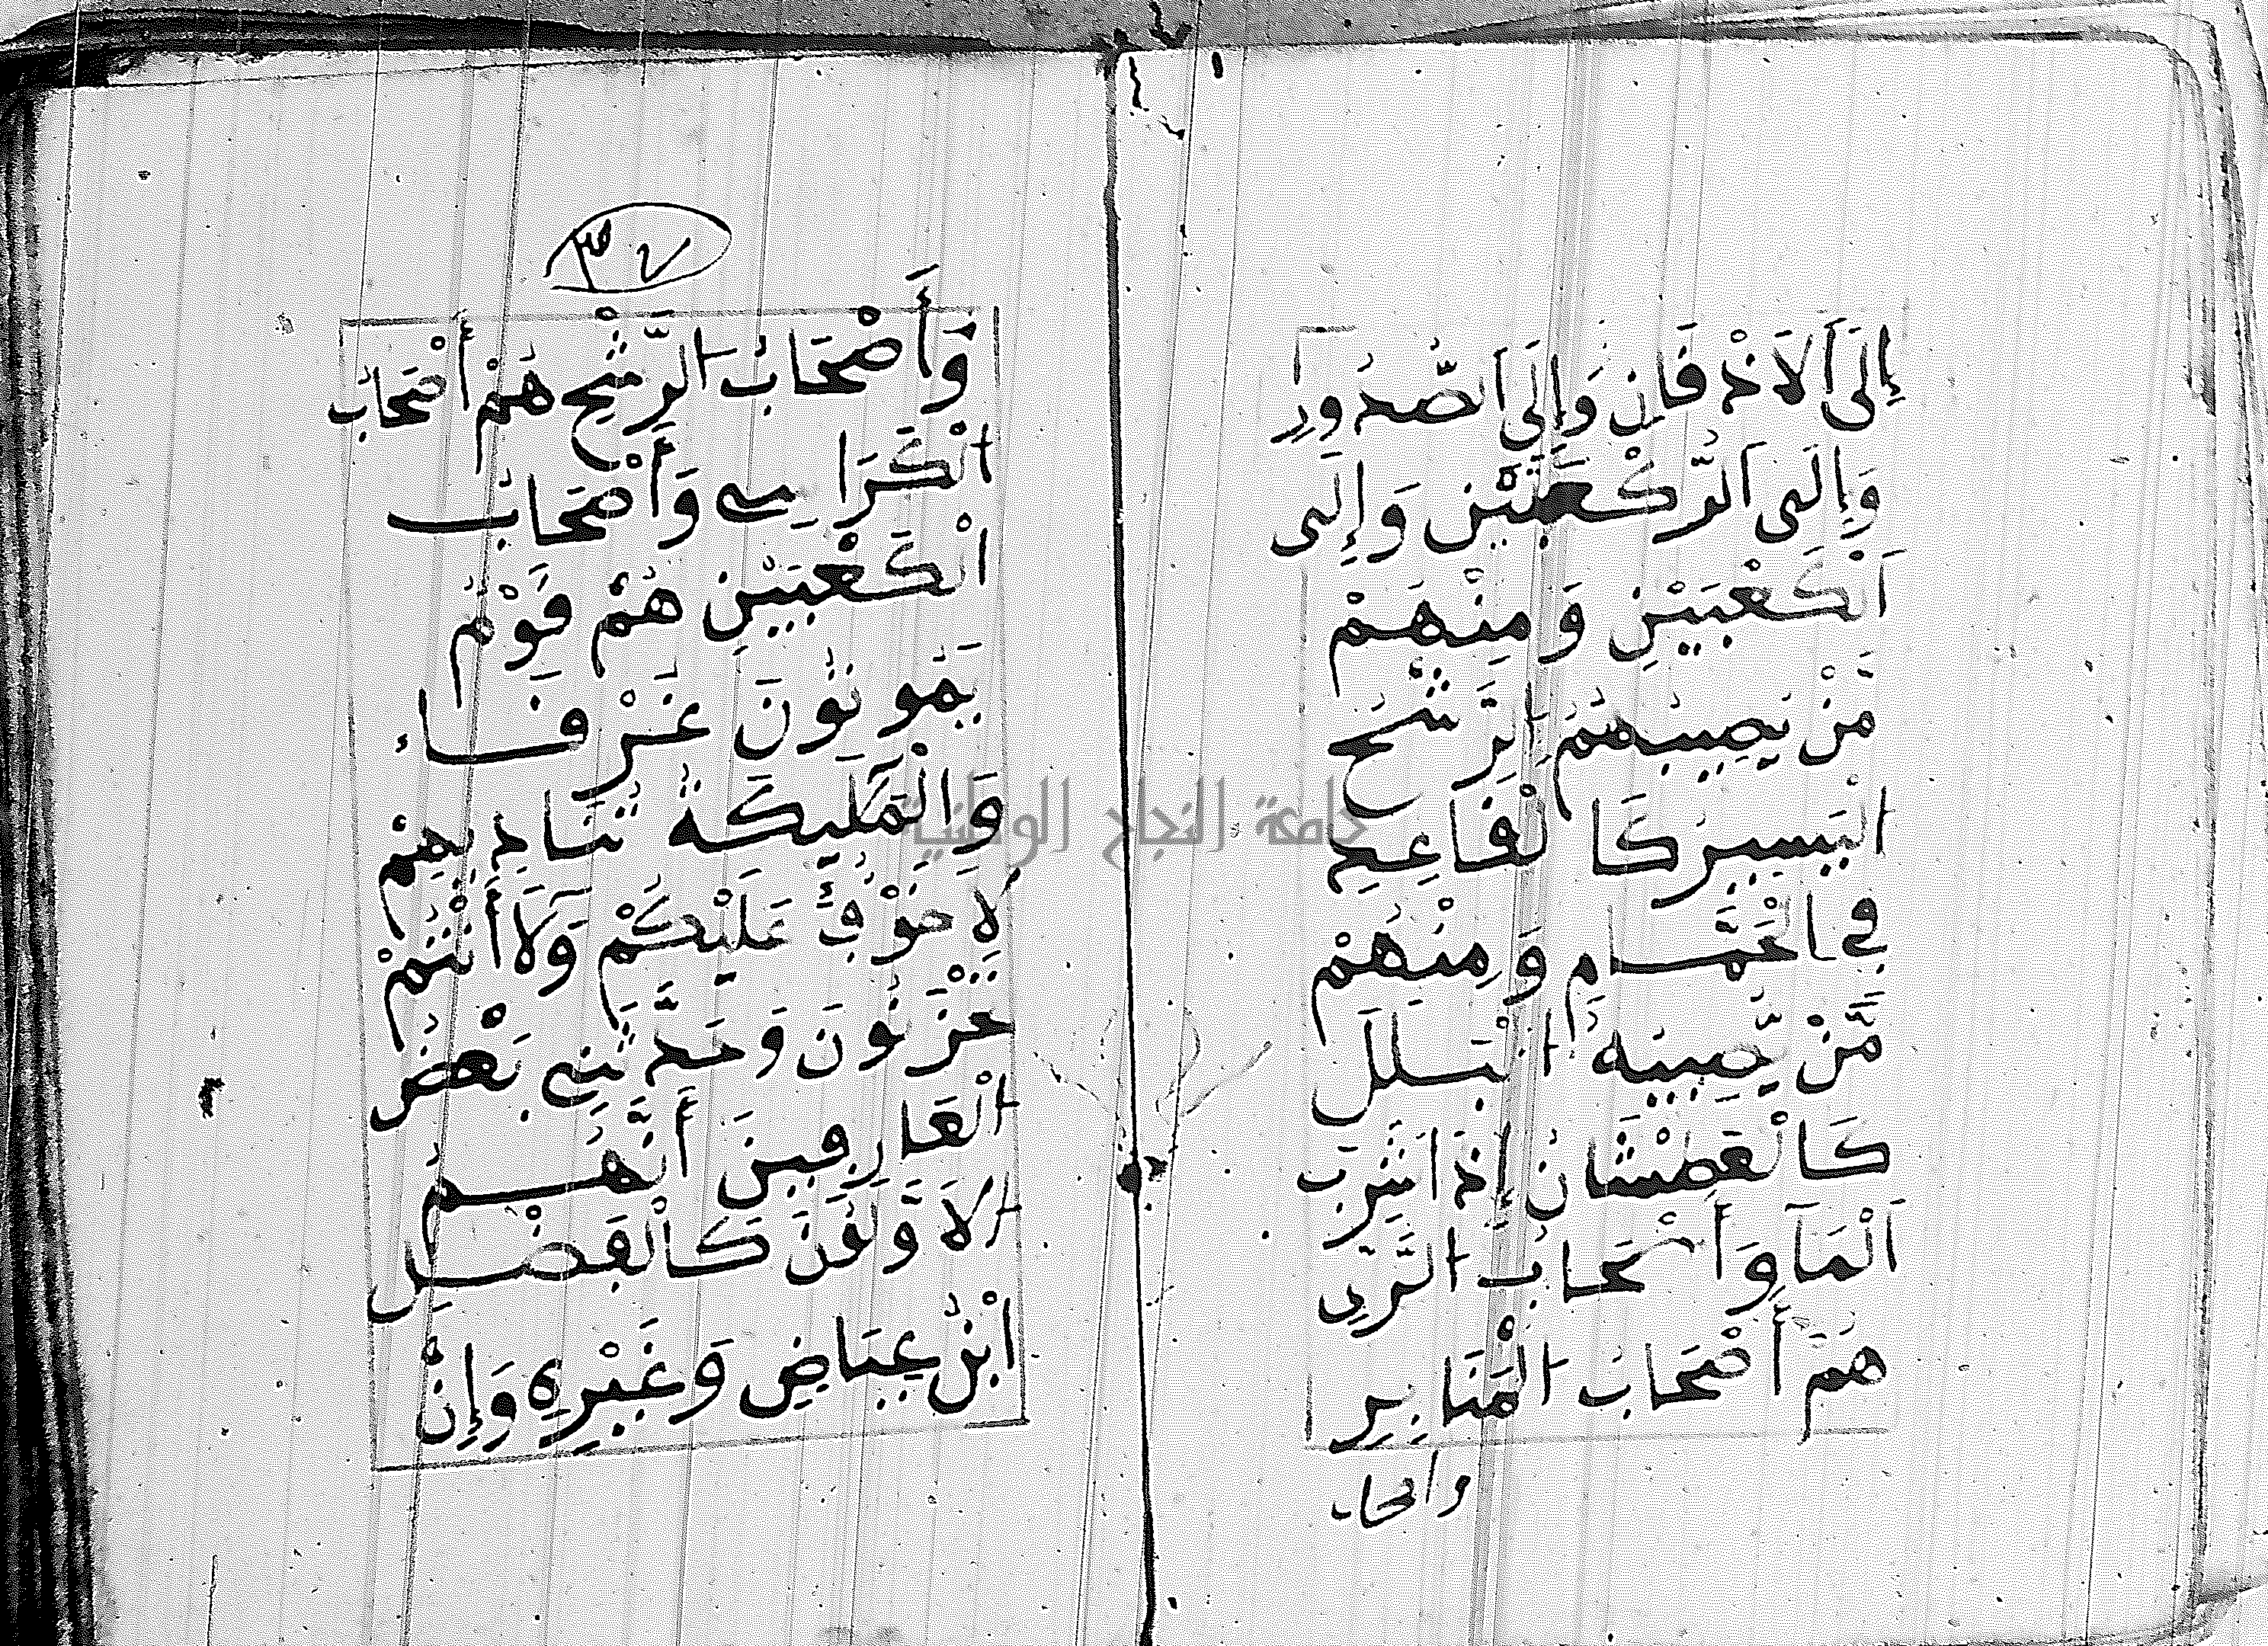 إِلَى الَاذْقَانِ وَإِلَى الصُّدُورِ
وَإِلَى الرُّكْعَتَيْنِ وَإِلَى
اَلْكَعْبَيْنِ وَمِنْهُمْ
مَنْ يُصِيبُهُمُ الرَّشْحُ
الْيَسِيرُ كَالْقَاعِدِ
فِي الْحَمَّامِ وَمِنْهُمْ
مَّنْ يُّصِيبُهُ الْبَلَلُ
كَالْعَطْشَانِ إِذَا شَرِبَ
اَلْمَآ وَأَصْحَابُ الرَّيِّ
هُمْ أَصْحَابُ الْمَنَابِرِ
واصحاب
٣٧
وَأَصْحَابُ الرَّشْحِ هُمْ أَصْحَابُ
الْكَرَاسِي وَأَصْحَابُ
الْكَعْبَيْنِ هُمْ قَوْمٌ
يَمُوتُونَ غَرْقَاء
وَالْمَلَٰٓئِكَةُ تُنَادِيهِمْ
لَا خَوْفٌ عَلَيْكُمْ وَلَآ أَنْتُمْ
تَحْزَنُونَ وَحَدَّثَنِي بَعْضُ
الْعَارِفِينَ أَنَّهُمُ
الَاوَّلُونَ كَالْفُضَيْلِ
ابْنِ عِيَاضٍ وَغَيْرِهِ وَإِنْ
جامعة النجاح الوطنية